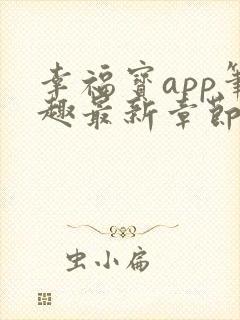 幸福宝app笔
趣最新章節
虫小扁